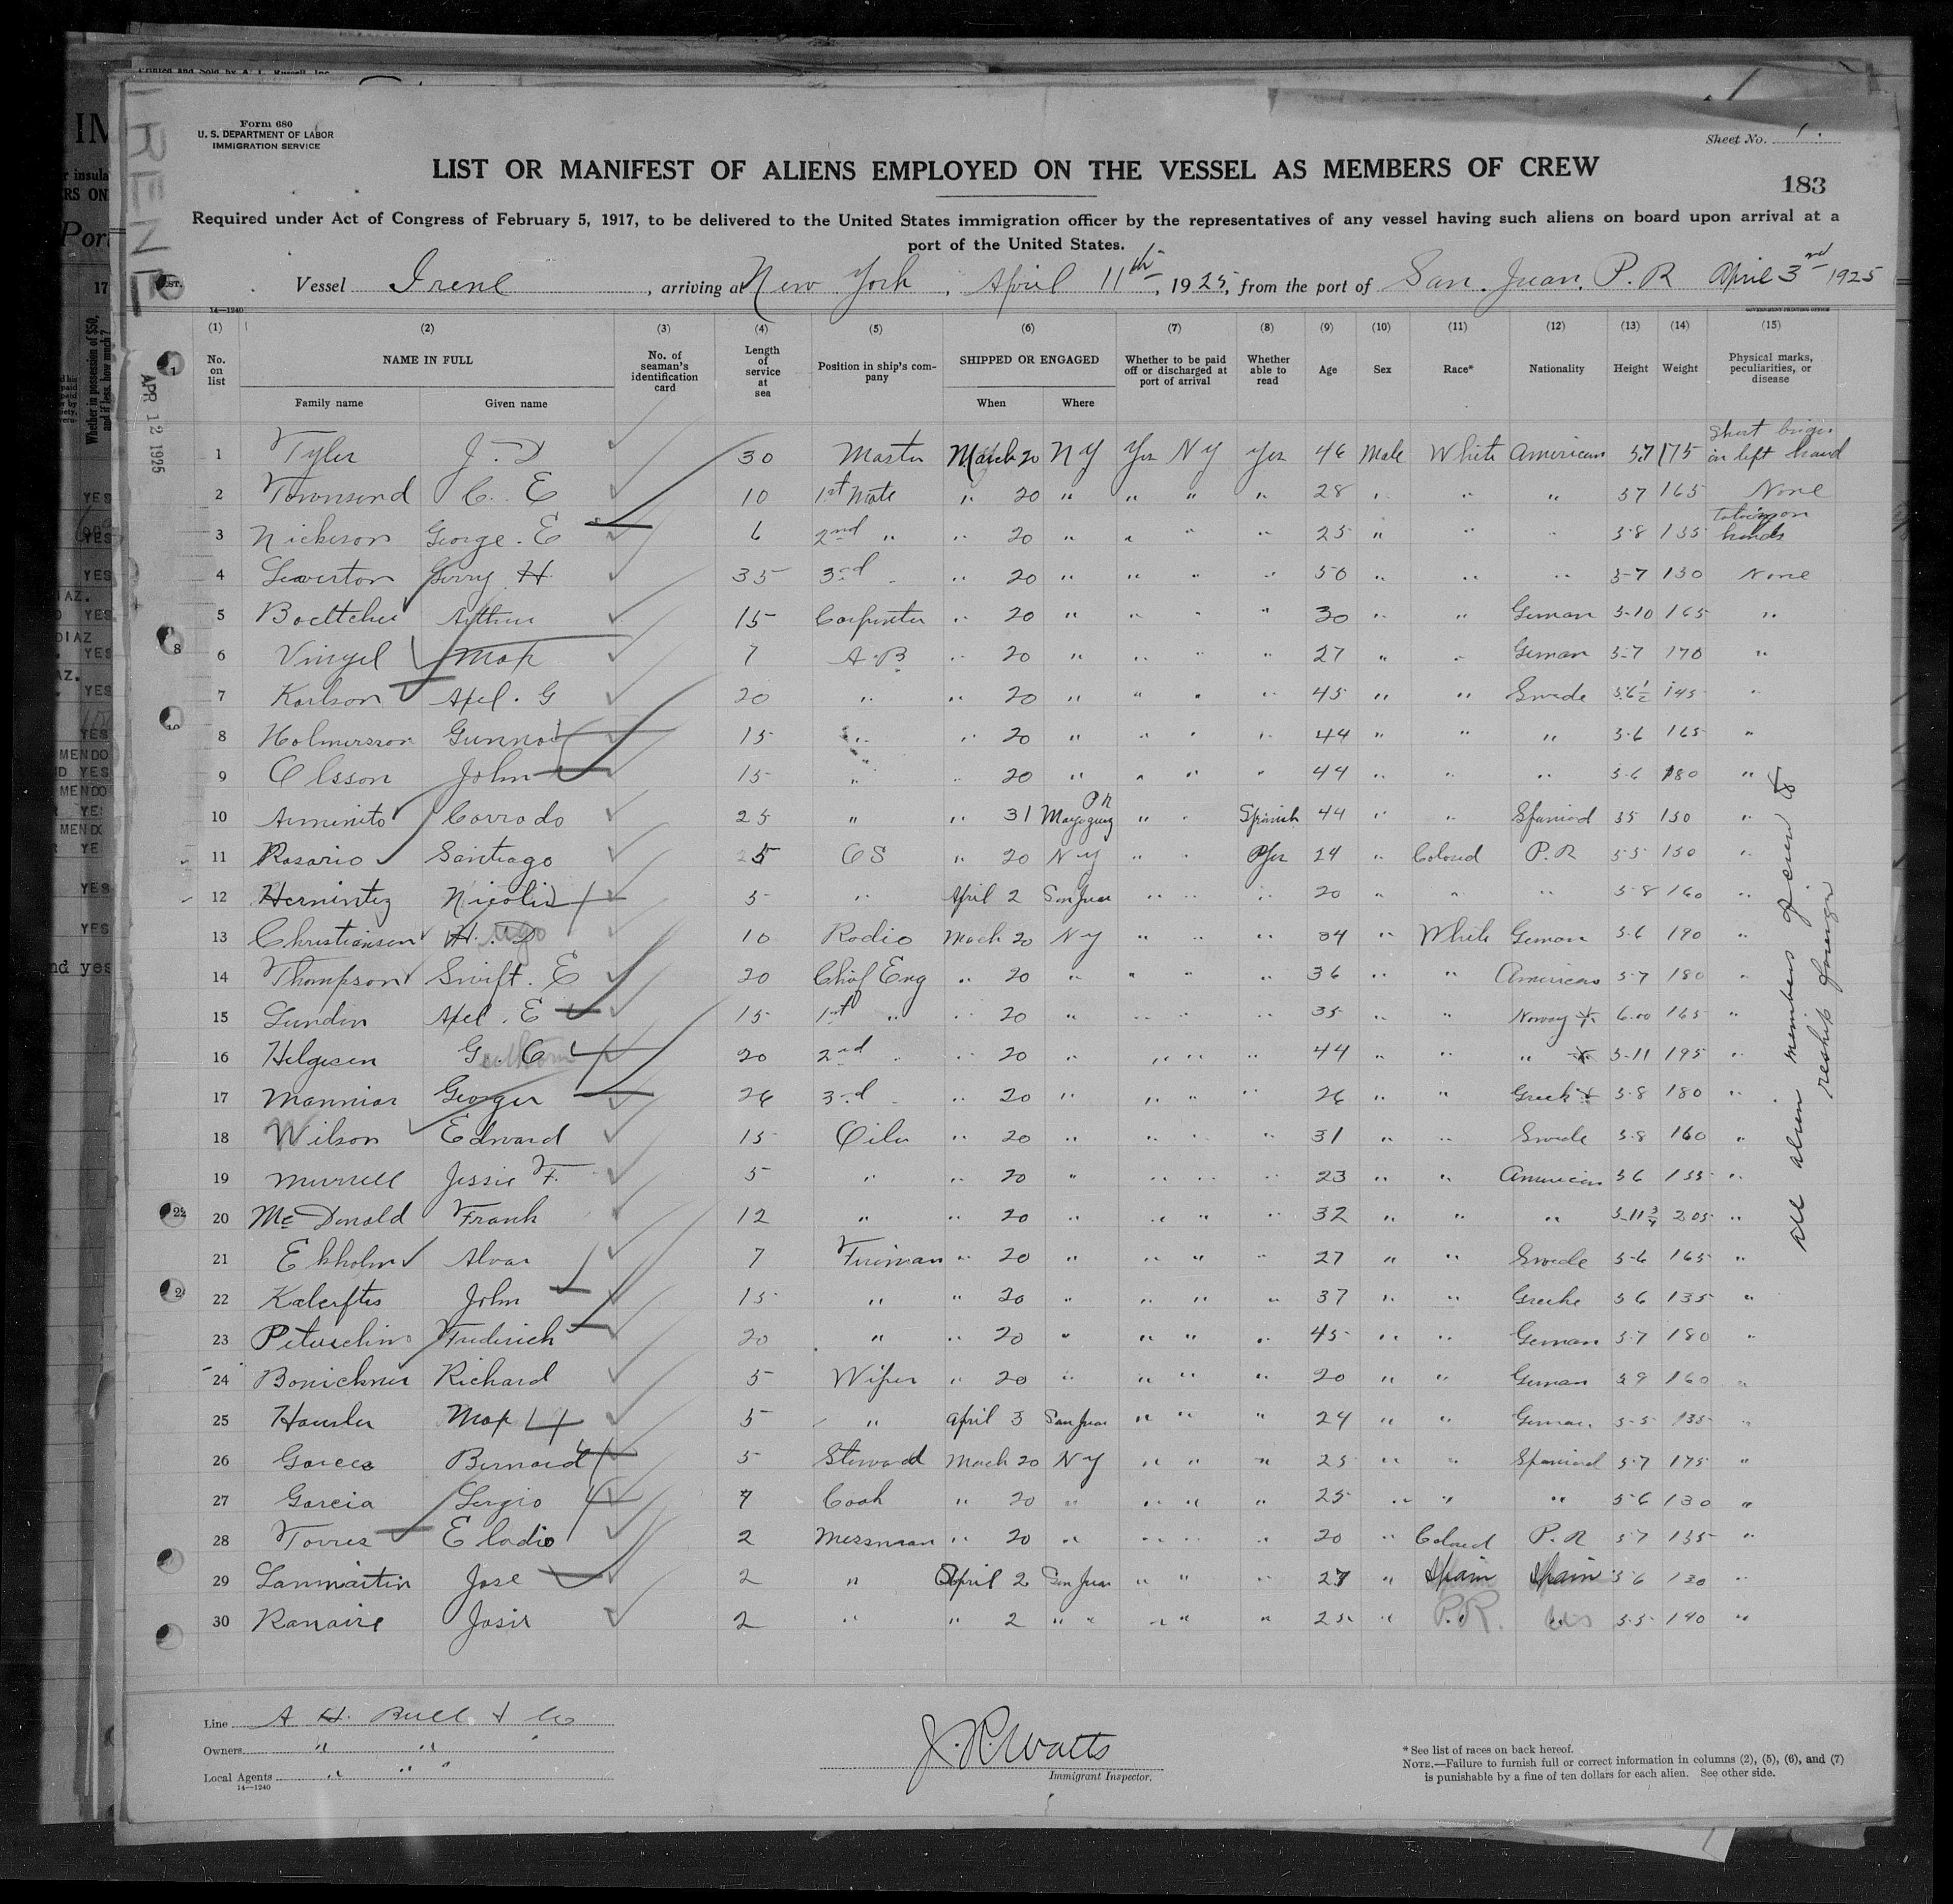 Printed and Sold by A. L. Russell, Inc.
Form 680
U. S. DEPARTMENT OF LABOR
IMMIGRATION SERVICE
Sheet No. 1.
LIST OR MANIFEST OF ALIENS EMPLOYED ON THE VESSEL AS MEMBERS OF CREW
183
Required under Act of Congress of February 5, 1917, to be delivered to the United States immigration officer by the representatives of any vessel having such aliens on board upon arrival at a
port of the United States.
IRENE
Vessel Irene, arriving at New York, April 11th, 1925, from the port of San Juan, P. R April 3rd 1925
14—1240
GOVERNMENT PRINTING OFFICE
(1) (2) (3) (4) (5) (6) (7) (8) (9) (10) (11) (12) (13) (14) (15)
No. on list NAME IN FULL Family name Given name No. of seaman's identification card Length of service at sea Position in ship's company SHIPPED OR ENGAGED When Where Whether to be paid off or discharged at port of arrival Whether able to read Age Sex Race* Nationality Height Weight Physical marks, peculiarities, or disease
APR 12 1925
1 Tyler J. D 30 Master March 20 N Y Yes N Y Yes 46 Male White American 5.7 175 Short finger on left hand
2 Townsend C. E 10 1st Mate " 20 " " " " 28 " " " 5 7 165 None
3 Nickerson George. E 6 2nd " " 20 " " " " 25 " " " 5-8 135 hands
4 Leverton H. 35 3rd " " 20 " " " " 50 " " " 5-7 130 None
5 Boettcher Arthur 15 Carpenter " 20 " " " 30 " " German 5-10 165 "
6 7 A. B " 20 " " " " 27 " " German 5-7 170 "
7 Karlson Axel. G 20 " " 20 " " " " 45 " " Swede 5.6½ 145 "
8 Holmersson Gunnar 15 " " 20 " " " " 44 " " " 5-6 165 "
9 Olsson John 15 " " 20 " " " " 44 " " " 5-6 180 "
10 Arminito Corrado 25 " " 31 Mayaguez P R " " Spanish 44 " " Spaniard 5 5 150 "
11 Rosario Santiago 5 O S " 20 N Y " " Yes 24 " Colored P. R 5-5 150 "
12 5 " April 2 San Juan " " " 20 " " " 5-8 160 "
13 Christiansen Hugo 10 Radio March 20 N Y " " " 34 " White German 5-6 190 "
14 Thompson Swift. E 20 Chief Eng " 20 " " " " 36 " " American 5-7 180 "
15 Lundin Axel. E 15 1st " " 20 " " " " 35 " " Norway 6.00 165 "
16 Helgesen G. C 20 2nd " " 20 " " " " 44 " " " 5-11 195 "
17 Mannias George 26 3rd " " 20 " " " " 26 " " Greek 5-8 180 "
18 Wilson Edward 15 Oiler " 20 " " " " 31 " " Swede 5-8 160 "
19 Murrell Jessie F. 5 " " 20 " " " " 23 " " American 5 6 155 "
20 McDonald Frank 12 " " 20 " " " " 32 " " " 5-11¾ 205 "
21 Ekholm Alvar 7 Fireman " 20 " " " " 27 " " Swede 5-6 165 "
22 John 15 " " 20 " " " " 37 " " Greeke 5 6 135 "
23 Frederich 20 " " 20 " " " " 45 " " German 5-7 180 "
24 Richard 5 Wiper " 20 " " " " 20 " " German 5 9 160 "
25 Hausler Max 5 " April 3 San Juan " " " 24 " " German 5-5 135 "
26 Bernard 5 Steward March 20 N Y " " " 25 " " Spaniard 5-7 175 "
27 Garcia Sergio 7 Cook " 20 " " " " 25 " " " 5-6 130 "
28 Torres Eladio 2 Messman " 20 " " " " 20 " Colored P. R 5 7 135 "
29 Sanmartin Jose 2 " April 2 San Juan " " " 27 " Spain Spain 5 6 130 "
30 2 " " 2 " " " " " 25 " P.R. 5-5 140 "
All alien members of crew to
reship foreign
Line A. H. Bull & Co
Owners " " "
Local Agents " " "
14—1240
J. P. Watts
Immigrant Inspector.
* See list of races on back hereof.
NOTE.—Failure to furnish full or correct information in columns (2), (5), (6), and (7)
is punishable by a fine of ten dollars for each alien. See other side.